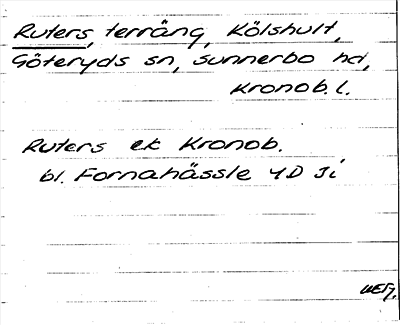 Ruters, terräng, Kölshult,
Göteryds sn, Sunnerbo hd,
Kronob. l.
Ruters ek Kronob.
bl. Fornahässle 4D 3i